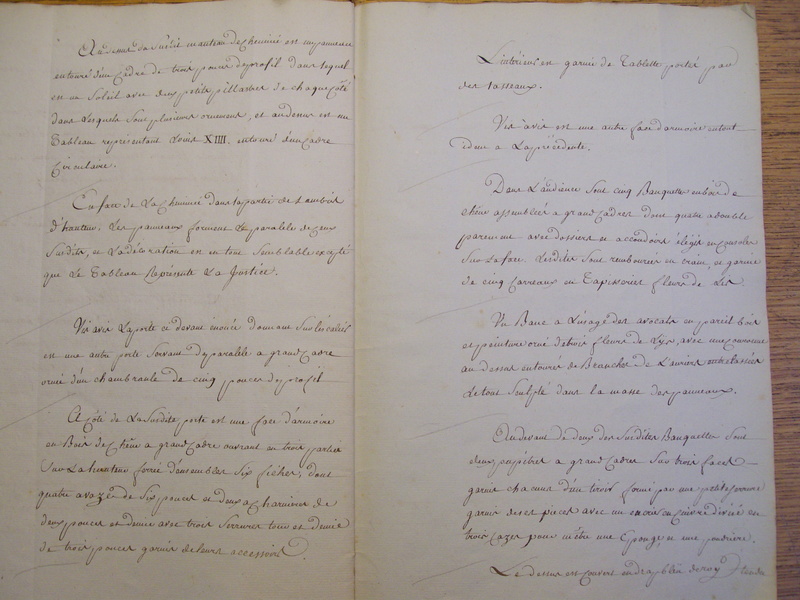 Au dessus du susdit manteau de Cheminée est un panneau
entouré d'un Cadre de trois pouces de profil dans lequel
est un Soleil avec deux petits pillastres de chaque Coté
dans lesquels sont plusieurs ornemens, et au dessus est un
Tableau représentant Louis XIIII. entouré d'un Cadre
Circulaire.
En face de La Cheminée dans la partie de Lambris
d'hauteur, Les panneaux forment le paralele de ceux
Susdits, et La décoration en est toute Semblable excepté
que Le Tableau Représente La Justice.
Vis avis La porte ci devant énoncée donnant Sur
est une autre porte Servant de paralele a grand Cadre
orné d'un chambranle de cinq pouces de profil
A Côté de La Susdite porte est une face d'armoire
en Bois de Chêne a grand Cadre ouvrant en trois parties
Sur La hauteur ferré d'ensembles Six fiches, dont
quatre a vazes de Six pouces et deux a Charnieres de
deux pouces et demie avec trois Serrures tour et demie
de trois pouces garnis de leurs accessoires.
L'intérieur est garnie de Tablette portée par
des tasseaux.
Vis avis est une autre face d'armoire en tout
idem a La précédente.
Dans L'audience Sont cinq Banquettes en bois de
chêne assemblées a grand Cadres dont quatre a double
parement avec dossiers et accoudoirs élégis en Consoles
Sur La face. Lesdites Sont rembourrées en crain, et garnie
de cinq Carreaux en Tapisseries fleurs de Lis.
Un Banc a L'usage des avocats en pareil bois
et peinture orné de trois fleurs de Lys, avec une Couronne
au dessus entourés de Branches de Lauriers entrelassées
Le tout Sculpté dans la masse des panneaux.
Au devant de deux des Susdites Banquettes Sont
deux pupitres a grand Cadres Sur trois faces
garnis chacuns d'un tiroir fermé par une petite Serrure
garnie de ses pieces avec un encrié en Cuivre divisé en
trois Cazes pour mêtre une Eponge, et une poudriere.
Le dessus est couvert en drap bleu de roy